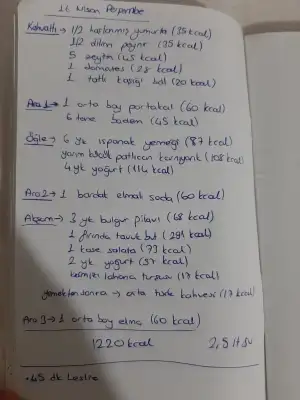 11 Nisan Perşembe
Kahvaltı → 1/2 haşlanmış yumurta (35 kcal)
1/2 dilim peynir (35 kcal)
5 zeytin (45 kcal)
1 domates (28 kcal)
1 tatlı kaşığı bal (20 kcal)
Ara 1 → 1 orta boy portakal (60 kcal)
6 tane badem (45 kcal)
Öğle → 6 yk ıspanak yemeği (87 kcal)
yarım patlıcan karnıyarık (108 kcal)
4 yk yoğurt (114 kcal)
Ara 2 → 1 bardak elmalı soda (60 kcal)
Akşam → 3 yk bulgur pilavı (68 kcal)
1 fırında tavuk but (291 kcal)
1 kase salata (73 kcal)
2 yk yoğurt (57 kcal)
kırmızı lahana turşusu (17 kcal)
yemekten sonra → orta türk kahvesi (17 kcal)
Ara 3 → 1 orta boy elma (60 kcal)
1220 kcal 2,5 lt su
• 45 dk